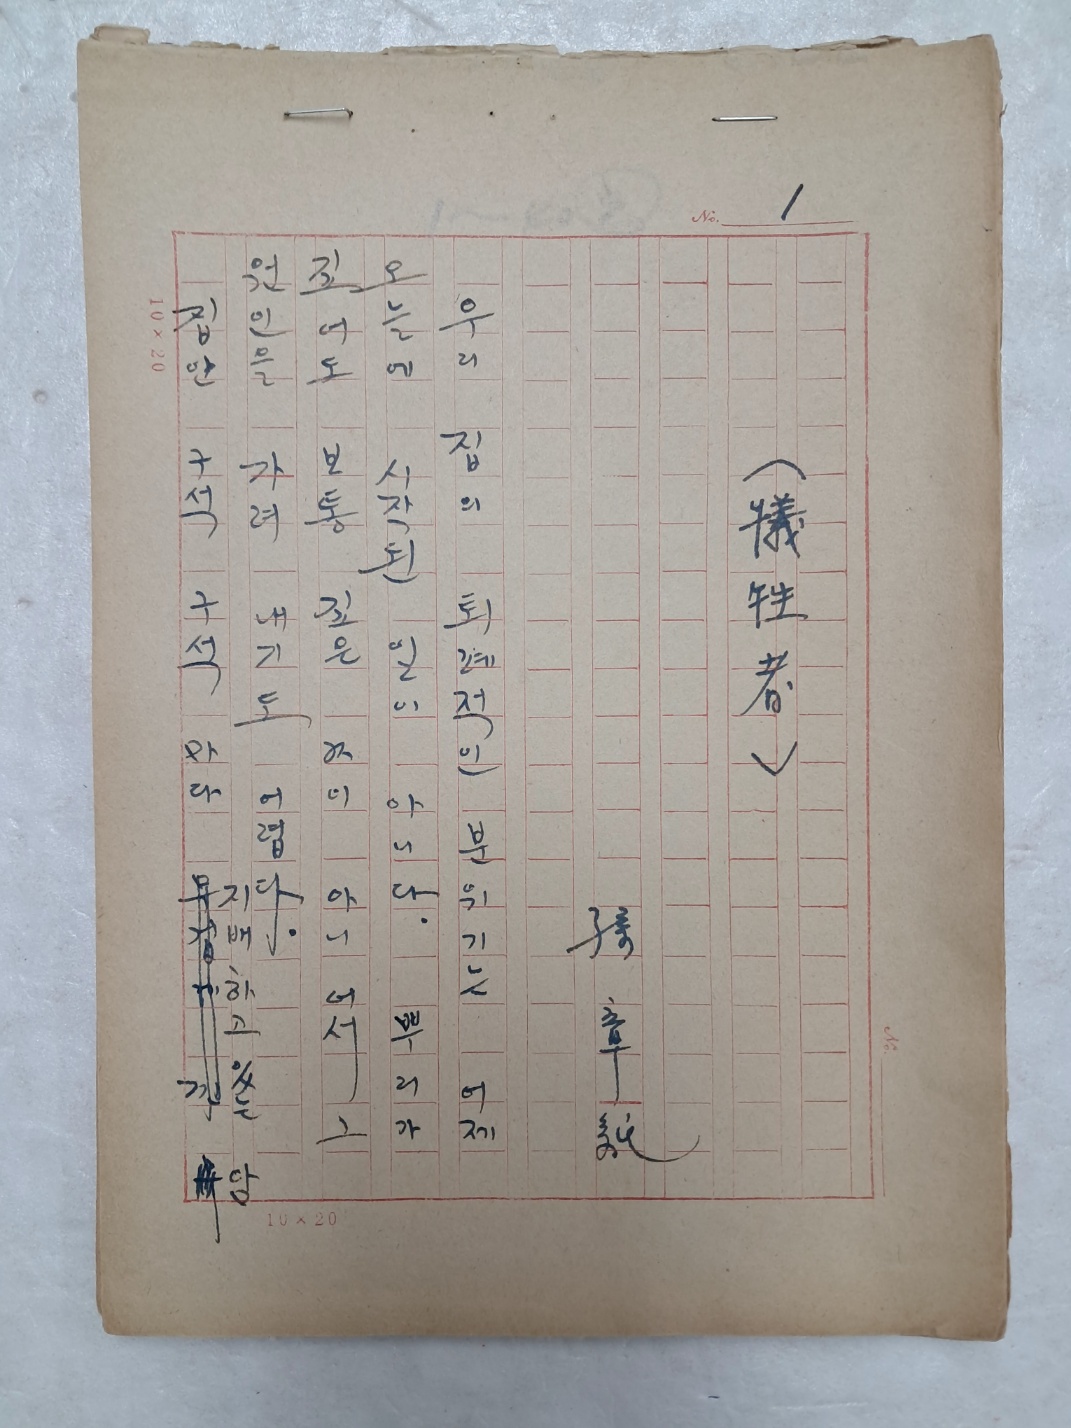 No. 1
(犧牲者)
孫章純
우리 집의 퇴폐적인 분위기는 어제
오늘에 시작된 일이 아니다. 뿌리가
깊어도 보통 깊은 것이 아니어서 그
원인을 가려 내기도 어렵다.
지배하고 있는 암
집안 구석 구석 마다
10×20
10×20
No.